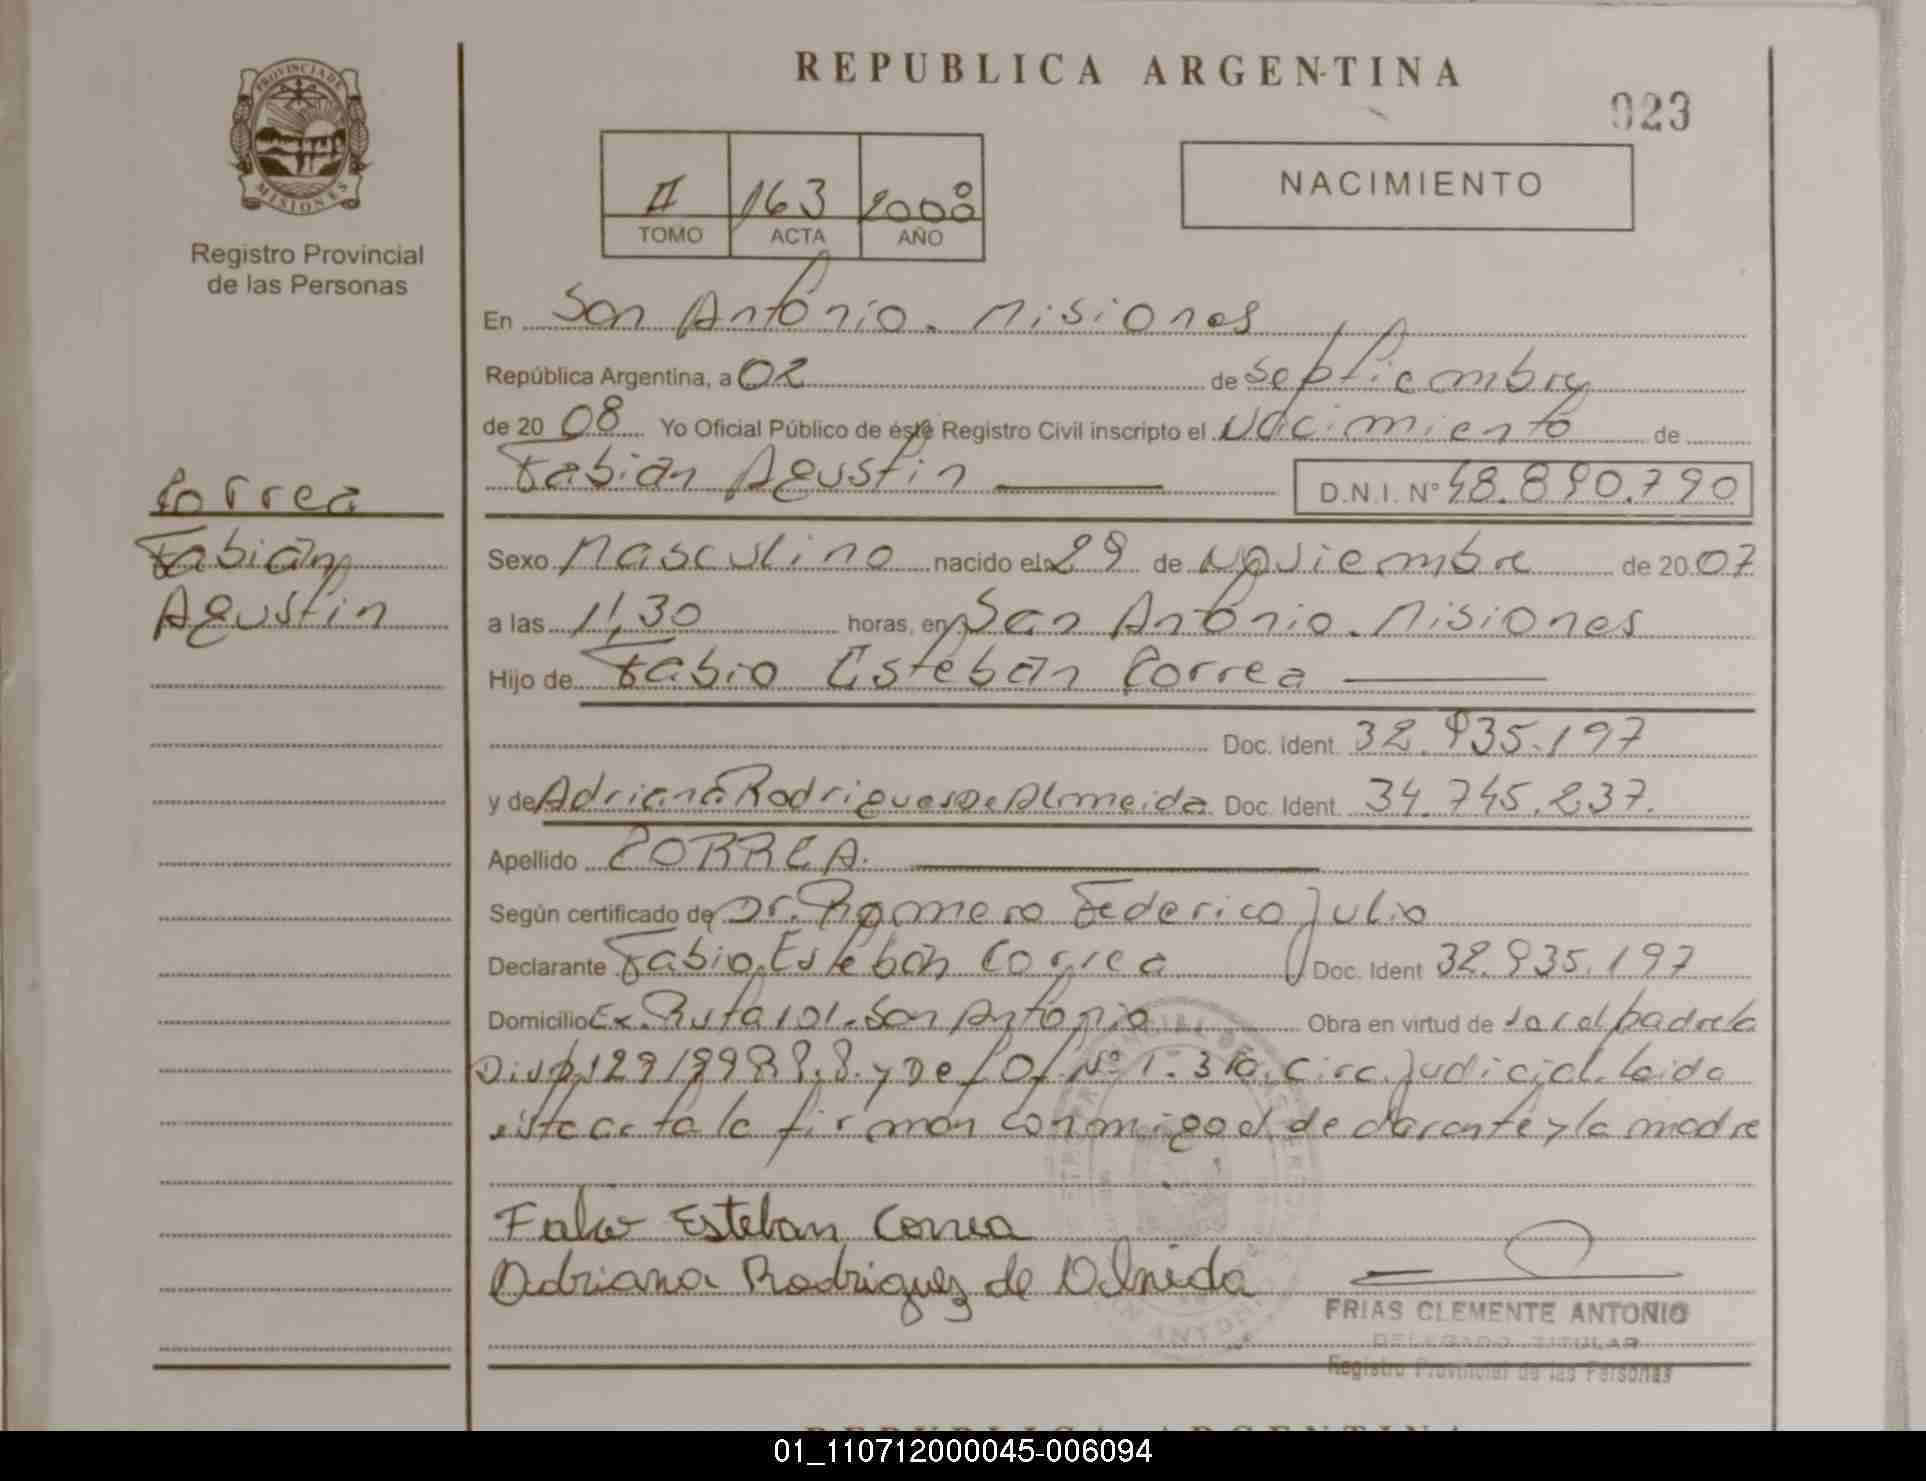 REPUBLICA ARGENTINA
023
PROVINCIA DE
MISIONES
Registro Provincial
de las Personas
II 163 2008
TOMO ACTA AÑO
NACIMIENTO
En San Antonio. Misiones
República Argentina, a 02 de septiembre
de 2008 Yo Oficial Público de éste Registro Civil inscripto el Nacimiento de
Fabián Agustín D.N.I. Nº 48.890.790
Correa
Fabián
Agustín
Sexo Masculino nacido el 29 de Noviembre de 2007
a las 11,30 horas, en San Antonio. Misiones
Hijo de Fabio Esteban Correa
Doc. Ident. 32.935.197
y de Adriana Rodrigues De Almeida Doc. Ident. 34.745.237.
Apellido CORREA.
Según certificado de Dr. Romero Federico Julio
Declarante Fabio Esteban Correa Doc. Ident 32.935.197
Domicilio Ex. Ruta 101. San Antonio Obra en virtud de
Circ. Judicial. Leida
esta acta la firman conmigo el declarante y la madre
Fabio Esteban Correa
Adriana Rodriguez de Olmida
FRIAS CLEMENTE ANTONIO
DELEGADO TITULAR
Registro Provincial de las Personas
REPUBLICA ARGENTINA
01_110712000045-006094